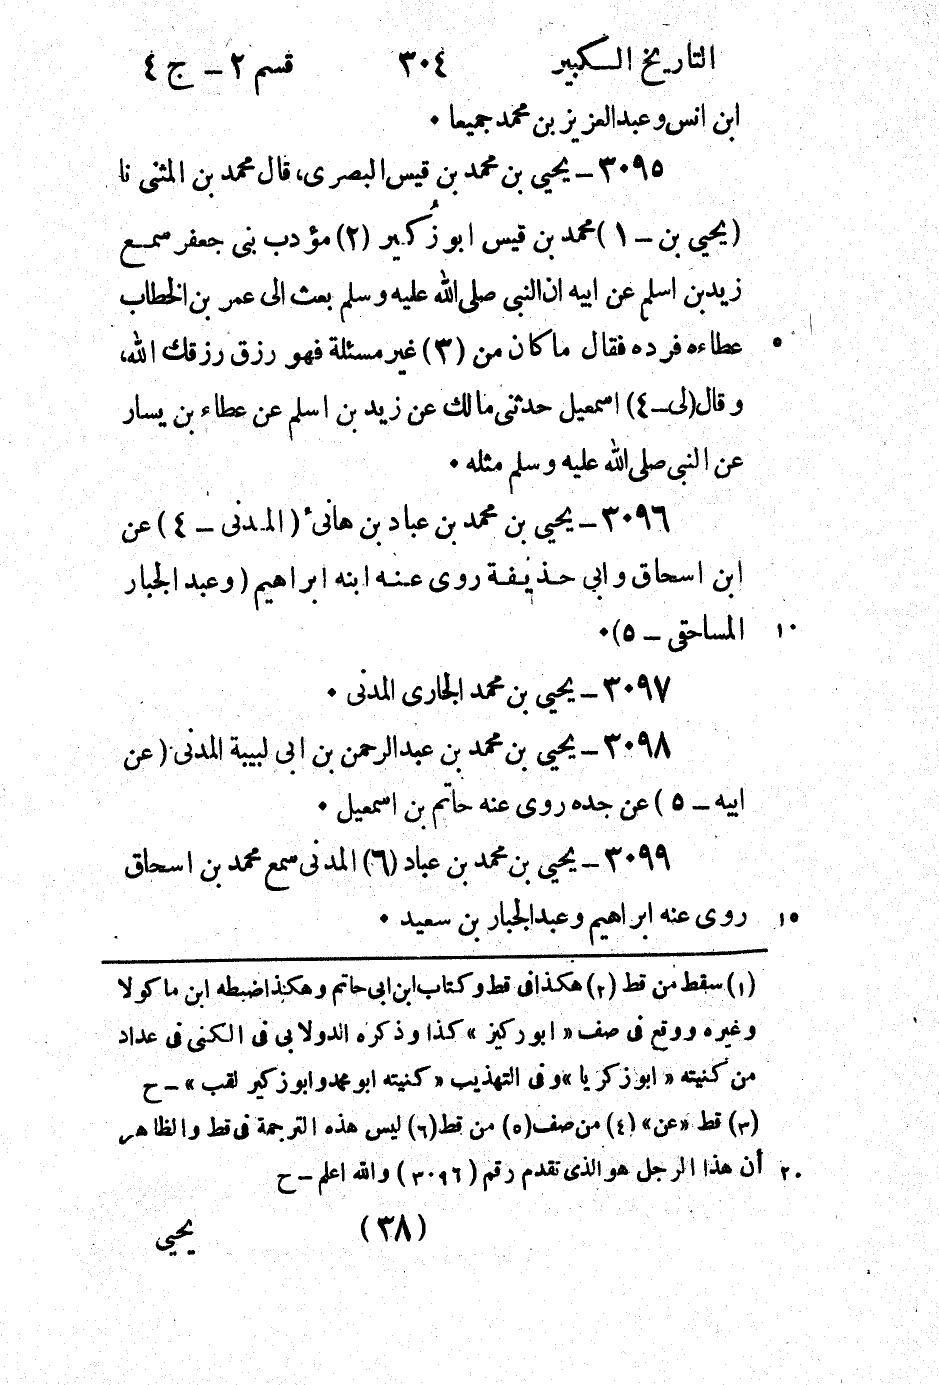 التاريخ الكبير ٣٠٤ قسم ٢ - ج ٤
ابن انس وعبد العزيز بن محمد جميعا ٠
٣٠٩٥ - يحيى بن محمد بن قيس البصرى، قال محمد بن المثنى نا
(يحيى بن - ١) محمد بن قيس ابو زُكير (٢) مؤدب بنى جعفر سمع
زيد بن اسلم عن ابيه ان النبى صلى الله عليه وسلم بعث الى عمر بن الخطاب
٥ عطاءه فرده فقال ما كان من (٣) غير مسئلة فهو رزق رزقك الله،
وقال (لى - ٤) اسمعيل حدثنى مالك عن زيد بن اسلم عن عطاء بن يسار
عن النبى صلى الله عليه وسلم مثله ٠
٣٠٩٦ - يحيى بن محمد بن عباد بن هانئ (المدنى - ٤) عن
ابن اسحاق وابى حذيفة روى عنه ابنه ابراهيم (وعبد الجبار
١٠ المساحقى - ٥) ٠
٣٠٩٧ - يحيى بن محمد الجارى المدنى ٠
٣٠٩٨ - يحيى بن محمد بن عبد الرحمن بن ابى لبيبة المدنى (عن
ابيه - ٥) عن جده روى عنه حاتم بن اسمعيل ٠
٣٠٩٩ - يحيى بن محمد بن عباد (٦) المدنى سمع محمد بن اسحاق
١٥ روى عنه ابراهيم وعبد الجبار بن سعيد ٠
(١) سقط من قط (٢) هكذا فى قط وكتاب ابن ابى حاتم وهكذا ضبطه ابن ماكولا
وغيره ووقع فى صف « ابو ركيز » كذا وذكره الدولابى فى الكنى فى عداد
من كنيته « ابو زكريا » وفى التهذيب « كنيته ابو محمد وابو زكير لقب » - ح
(٣) قط «عن» (٤) من صف (٥) من قط (٦) ليس هذه الترجمة فى قط والظاهر
٢٠ أن هذا الرجل هو الذى تقدم رقم (٣٠٩٦) والله اعلم - ح
(٣٨) يحيى